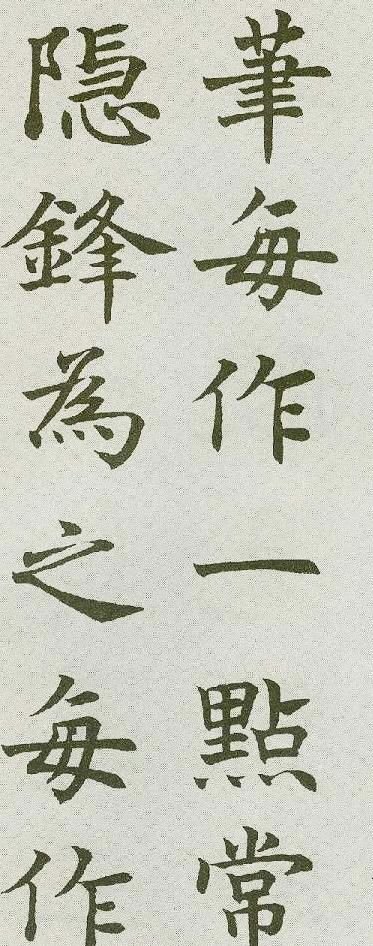 筆每作一點常
隠鋒為之每作